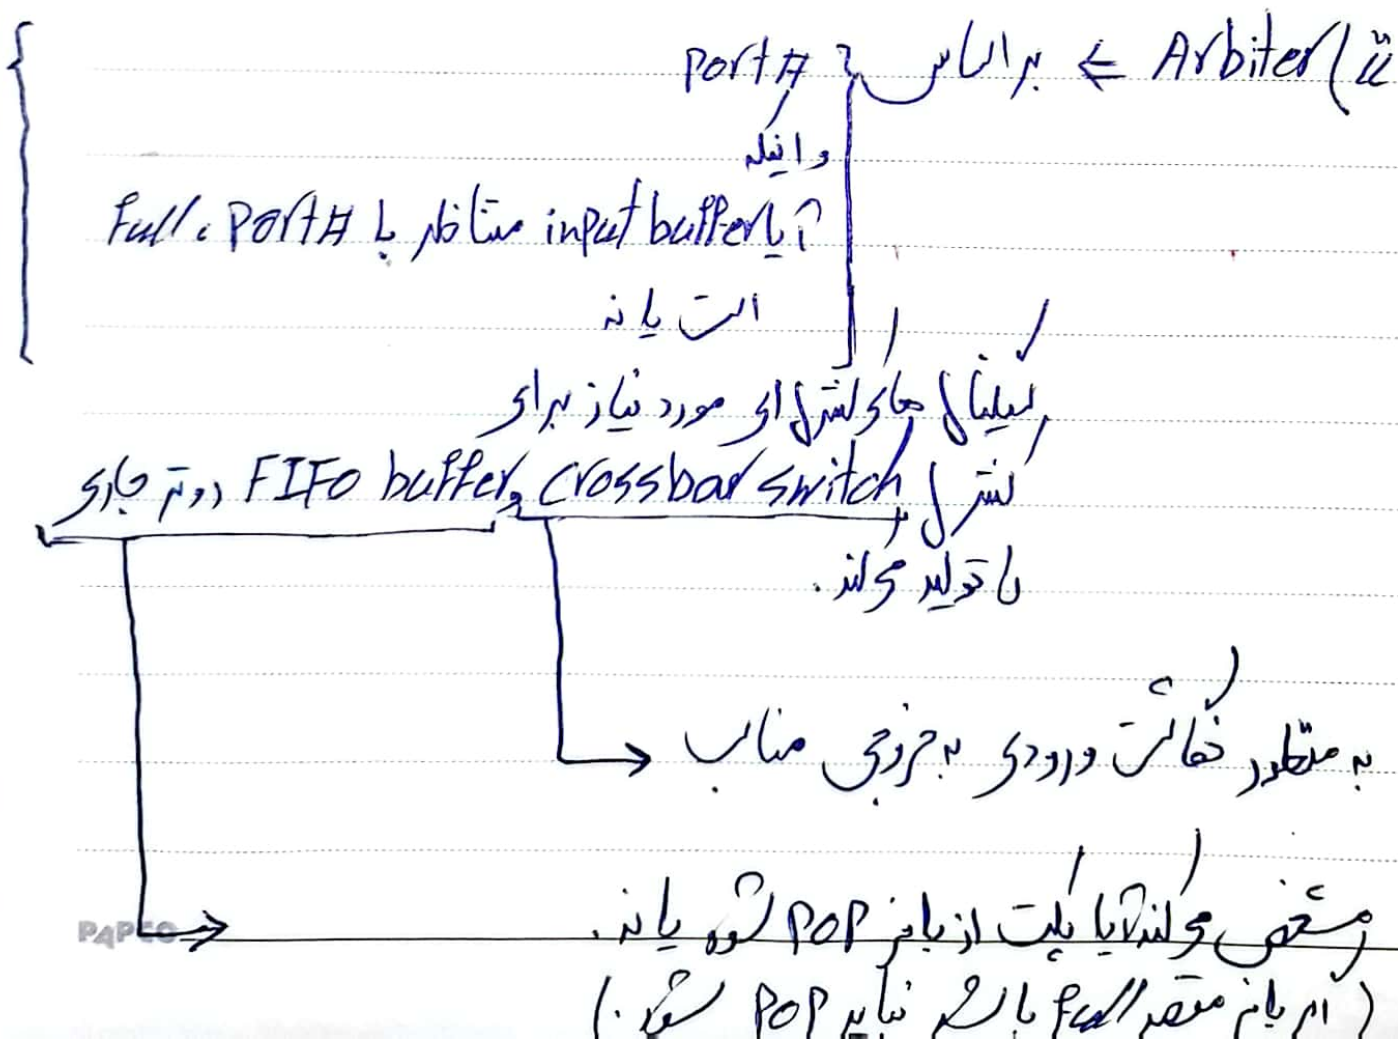 Arbiter ( ⇐ براساس port#
و اینکه
آیا input buffer متناظر با port# ، Full
است یا نه
سیگنال های کنترلی ای مورد نیاز برای
کنترل crossbar switch و FIFO buffer روتر جاری
را تولید می‌کند.
به منظور نگاشت ورودی به خروجی مناسب
مشخص می‌کند آیا پکت از بافر POP شود یا نه.
(اگر بافر مقصد full باشد نباید POP شود.)
PAPCO